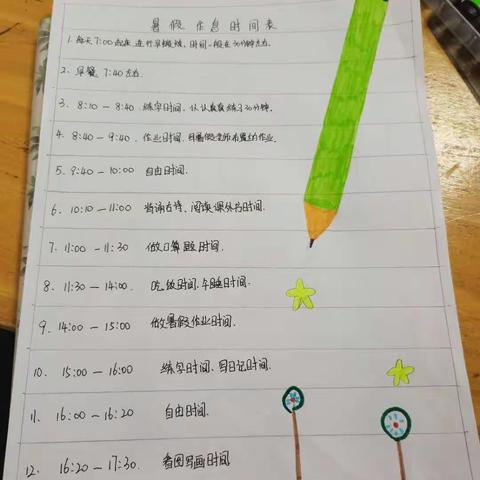 暑假作息时间表
1. 每天7:00起床,进行早锻炼,时间一般在30分钟左右.
2. 早餐 7:40左右.
3. 8:10 — 8:40 练字时间.认认真真练习30分钟.
4. 8:40 — 9:40. 作业时间.暑假老师布置的作业.
5. 9:40 — 10:00 自由时间.
6. 10:10 — 11:00 背诵古诗、阅读课外书时间.
7. 11:00 — 11:30 做口算题时间.
8. 11:30 — 14:00. 吃饭时间.午睡时间.
9. 14:00 — 15:00 做暑假作业时间.
10. 15:00 — 16:00 练字时间、写日记时间.
11. 16:00 — 16:20 自由时间.
12. 16:20 — 17:30. 看图写画时间